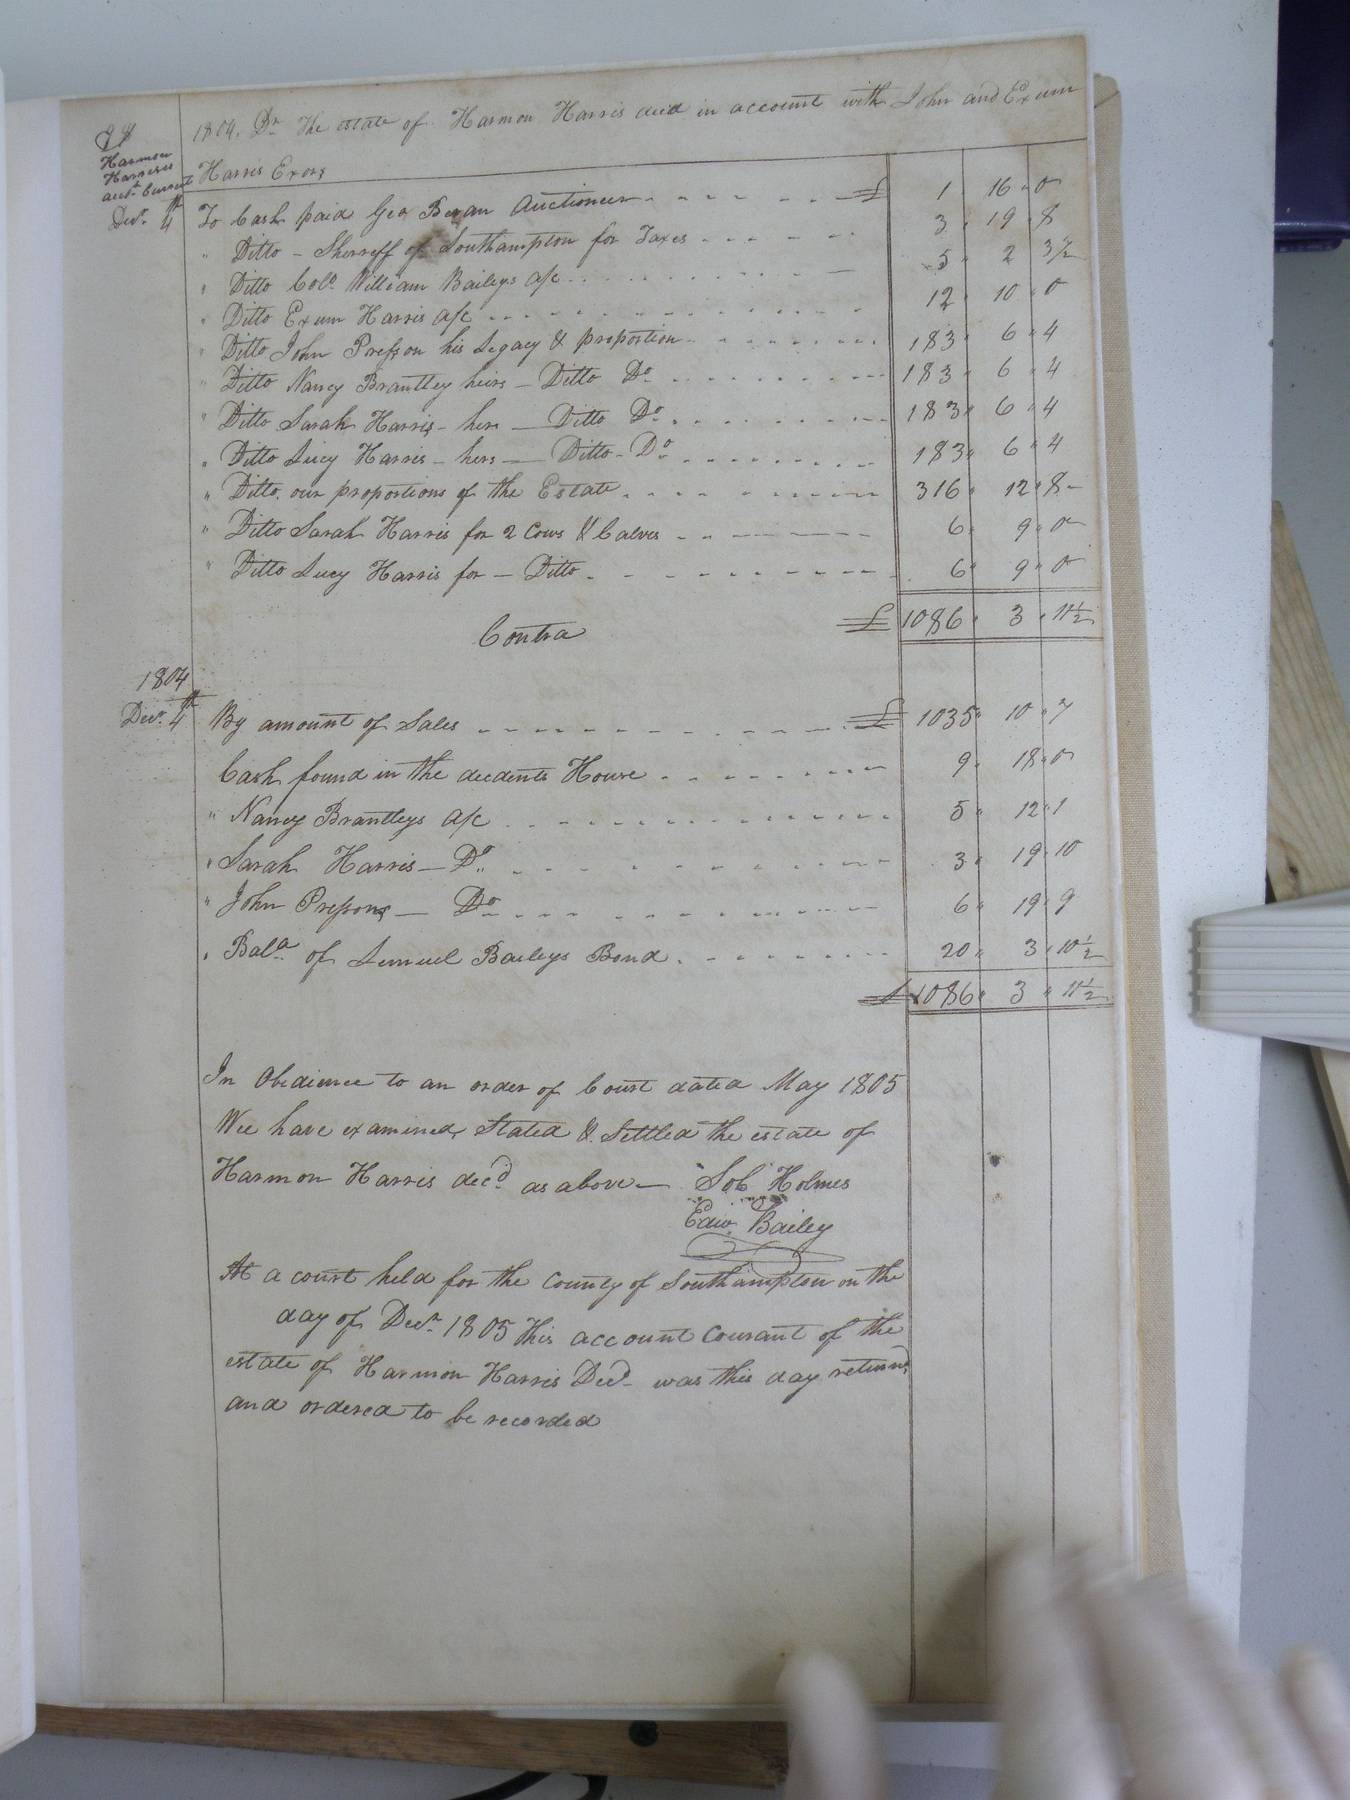 1804. Dr The estate of Harmon Harris decd in account with John and Exum
Harmon
Harris's
acct. Current
Harris Exors
Decr. 4th To Cash paid Geo Bevan Auctioneer £ 1 " 16 " 0
" Ditto - Sherreff of Southampton for Taxes 3 " 19 " 8
" Ditto Colo. William Baileys a/c 5 " 2 " 3 1/2
" Ditto Exum Harris a/c 12 " 10 " 0
" Ditto John Presson his Legacy & proportion 183 " 6 " 4
" Ditto Nancy Brantley heirs - Ditto Do 183 " 6 " 4
" Ditto Sarah Harris - hers - Ditto Do 183 " 6 " 4
" Ditto Lucy Harris - hers - Ditto - Do 183 " 6 " 4
" Ditto our proportions of the Estate 316 " 12 " 8
" Ditto Sarah Harris for 2 Cows & Calves 6 " 9 " 0
" Ditto Lucy Harris for - Ditto 6 " 9 " 0
£ 1086 " 3 " 11 1/2
Contra
1804
Decr. 4th By amount of Sales £ 1035 " 10 " 7
Cash found in the decedents House 9 " 18 " 0
" Nancy Brantleys a/c 5 " 12 " 1
" Sarah Harris - Do 3 " 19 " 10
" John Pressons - Do 6 " 19 " 9
" Bala. of Lemuel Baileys Bond 20 " 3 " 10 1/2
£ 1086 " 3 " 11 1/2
In Obedience to an order of Court dated May 1805
Wee have examined, Stated & Settled the estate of
Harmon Harris decd. as above - Sol Holmes
Edw. Bailey
At a court held for the County of Southampton on the
day of Decr. 1805 This account Courant of the
estate of Harmon Harris Decd - was this day returnd
and ordered to be recorded